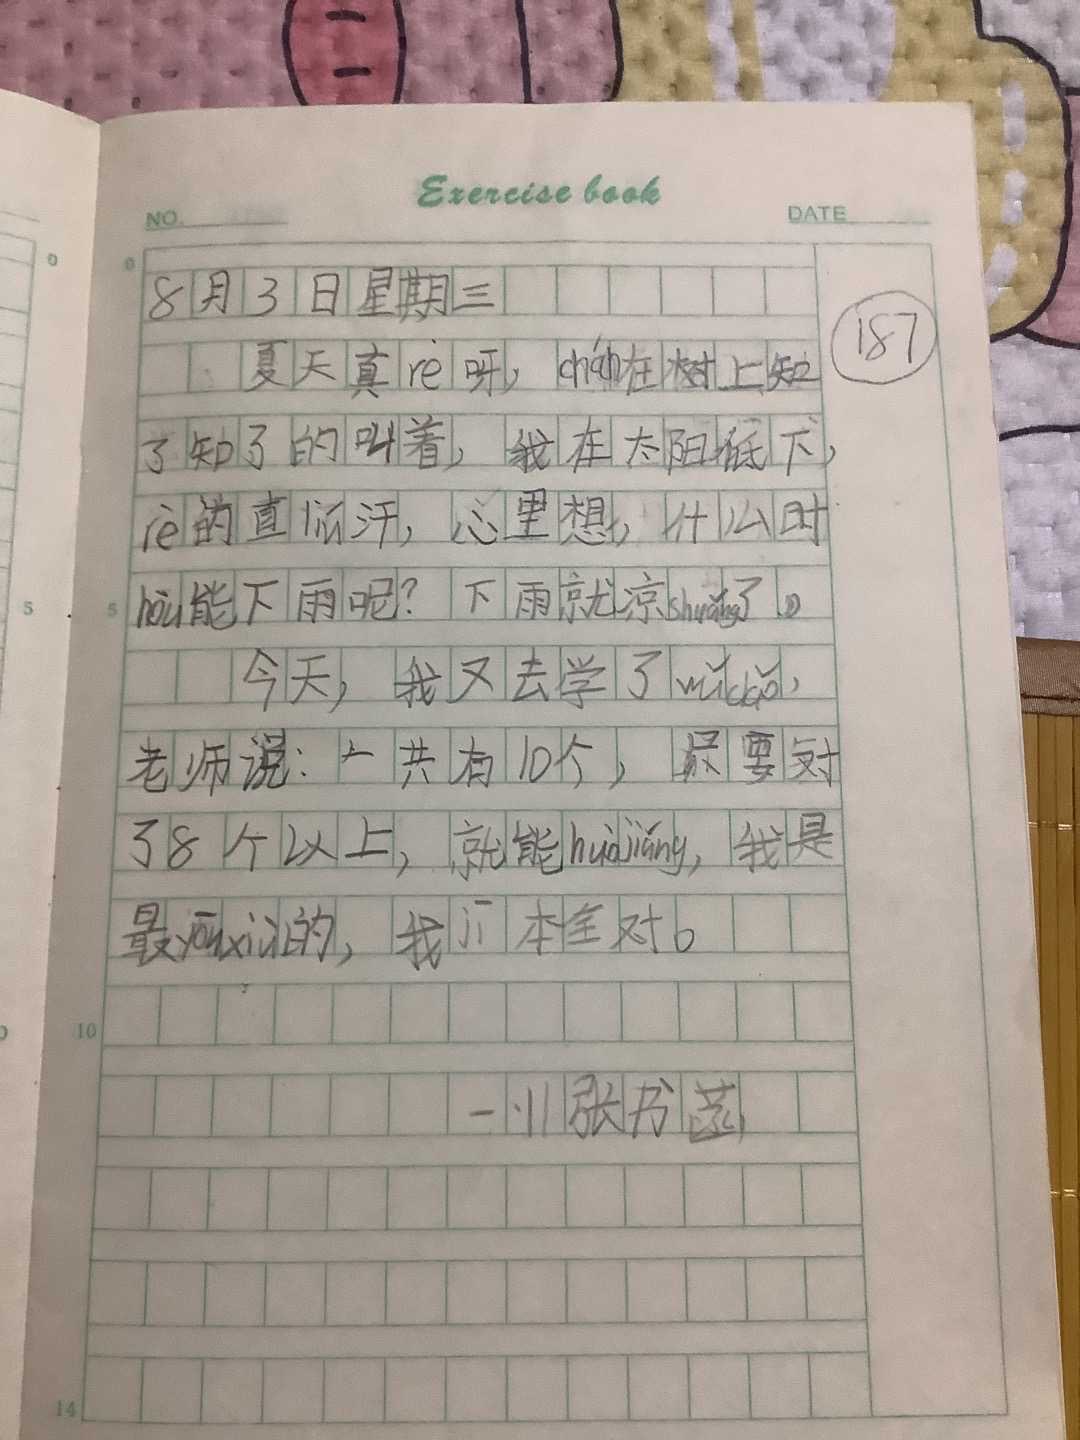 Exercise book
NO.
DATE
0
0
8月3日星期三
187
夏天真rè呀，chán在树上知
了知了的叫着，我在太阳低下，
rè的直liú汗，心里想，什么时
5
5
hòu能下雨呢？下雨就凉shuǎng了。
今天，我又去学了wǔdǎo，
老师说：一共有10个，只要对
了8个以上，就能huòjiǎng，我是
最yōuxiù的，我 本全对。
10
一·11张书
14